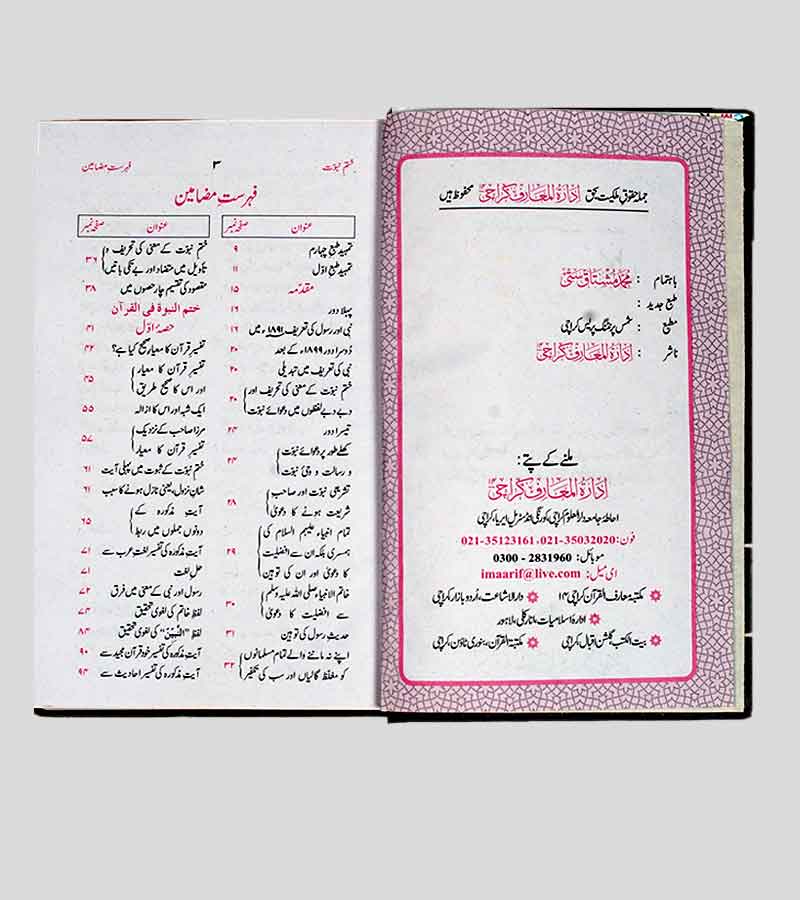 جملہ حقوق ملکیت بحق اِدَارَۃُ المَعَارِف کَرَاچِی محفوظ ہیں
باہتمام : محمد مشتاق سَتی
طبع جدید :
مطبع : شمس پرنٹنگ پریس کراچی
ناشر : اِدَارَۃُ المَعَارِف کَرَاچِی
ملنے کے پتے :
اِدَارَۃُ المَعَارِف کَرَاچِی
احاطۂ جامعہ دارالعلوم کراچی، کورنگی انڈسٹریل ایریا، کراچی
فون: 021-35123161، 021-35032020
موبائل: 0300 - 2831960
ای میل: imaarif@live.com
مکتبہ معارف القرآن کراچی ۱۴
دارالاشاعت، اُردو بازار، کراچی
ادارۂ اسلامیات، انارکلی، لاہور
بیت الکتب، گلشن اقبال، کراچی
مکتبۃ القرآن، بنوری ٹاؤن، کراچی
ختم نبوّت ۳ فہرست مضامین
فہرستِ مضامین
عنوان صفحہ نمبر
تمہید طبع چہارم ۹
تمہید طبع اوّل ۱۱
مقدّمہ ۱۵
پہلا دور ۱۶
نبی اور رسول کی تعریف ۱۸۹۱ء میں ۱۶
دُوسرا دور ۱۸۹۹ء کے بعد ۲۰
نبی کی تعریف میں تبدیلی ۲۰
ختم نبوّت کے معنی کی تحریف اور
دبے دبے لفظوں میں دعوائے نبوّت ۲۰
تیسرا دور ۲۴
کھلے طور پر دعوائے نبوّت
و رسالت و وحیٔ نبوّت ۲۴
تشریعی نبوّت اور صاحبِ
شریعت ہونے کا دعویٰ ۲۸
تمام انبیاء علیہم السلام کی
ہمسری بلکہ ان سے افضلیت
کا دعویٰ اور ان کی توہین ۲۹
خاتم الانبیاء صلی اللہ علیہ وسلم
سے افضلیت کا دعویٰ ۳۰
حدیثِ رسول کی توہین ۳۱
اپنے نہ ماننے والے تمام مسلمانوں
کو مغلظ گالیاں اور سب کی تکفیر ۳۲
عنوان صفحہ نمبر
ختم نبوّت کے معنی کی تحریف و
تأویل میں متضاد اور بے تکی باتیں ۳۶
مقصود کی تقسیم چار حصوں میں ۳۸
ختم النبوۃ فی القرآن
حصۂ اوّل ۴۱
تفسیرِ قرآن کا معیارِ صحیح کیا ہے؟ ۴۲
تفسیرِ قرآن کا معیار
اور اس کا صحیح طریق ۴۵
ایک شبہ اور اس کا ازالہ ۵۵
مرزا صاحب کے نزدیک
تفسیرِ قرآن کا معیار ۵۷
ختم نبوّت کے ثبوت میں پہلی آیت ۶۱
شانِ نزول، یعنی نازل ہونے کا سبب ۶۱
آیتِ مذکورہ کے
دونوں جملوں میں ربط ۶۵
آیتِ مذکورہ کی تفسیر لغتِ عرب سے ۷۱
حلِ لغت ۷۱
رسول اور نبی کے معنی میں فرق ۷۲
لفظِ خاتم کی لغوی تحقیق ۷۴
لفظ "النَّبِیّٖنَ" کی لغوی تحقیق ۸۴
آیتِ مذکورہ کی تفسیر خود قرآن مجید سے ۹۰
آیتِ مذکورہ کی تفسیر احادیث سے ۹۴